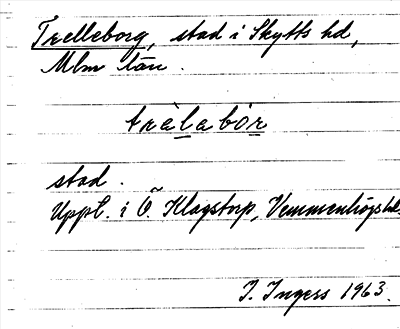 Trelleborg, stad i Skytts hd,
Mlm län.
trèlabór
stad.
Uppt. i Ö. Klagstorp, Vemmenhögs hd.
I. Ingers 1963.